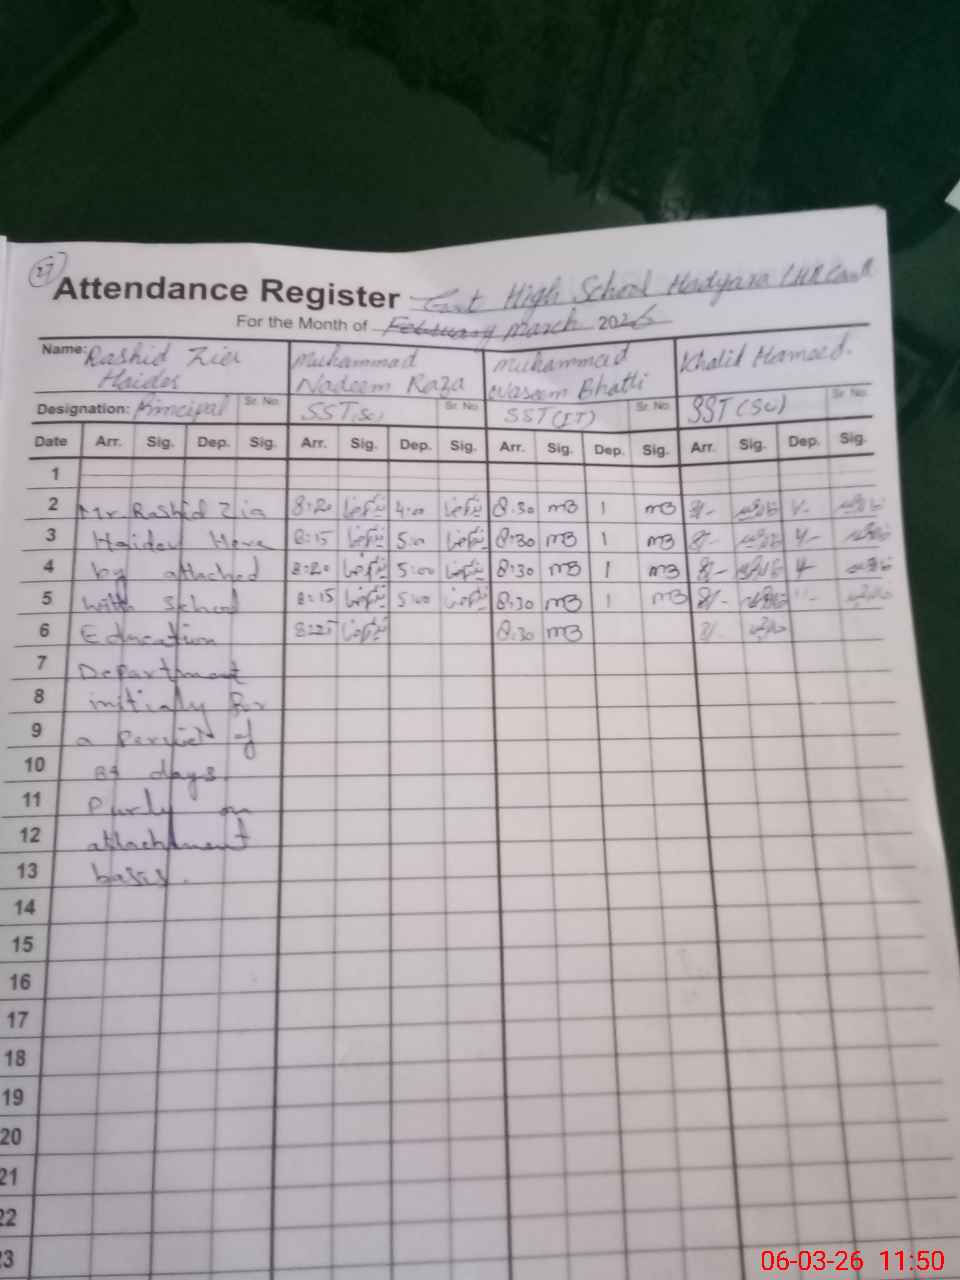 27
Attendance Register Govt High School Hadyara LHR Cantt
For the Month of February March 2026
Name: Rashid Zia Haider Muhammad Nadeem Raza Muhammad Waseem Bhatti Khalid Hameed.
Designation: Principal Sr. No. SST(Sc) Sr. No. SST(IT) Sr. No. SST(Sc) Sr. No.
Date Arr. Sig. Dep. Sig. Arr. Sig. Dep. Sig. Arr. Sig. Dep. Sig. Arr. Sig. Dep. Sig.
1
2 Mr. Rashid Zia 8:20 4:00 8:30 mB 1 mB 8/-
3 Haider Here 8:15 5:0 8:30 mB 1 mB 8/-
4 by attached 8:20 5:00 8:30 mB 1 mB 8/-
5 with School 8:15 5:00 8:30 mB 1 mB 8/-
6 Education 8:25 8:30 mB 8/-
7 Department
8 initialy for
9 a period of
10 89 days.
11 Purly on
12 attachment
13 basis.
14
15
16
17
18
19
20
21
22
23
06-03-26 11:50